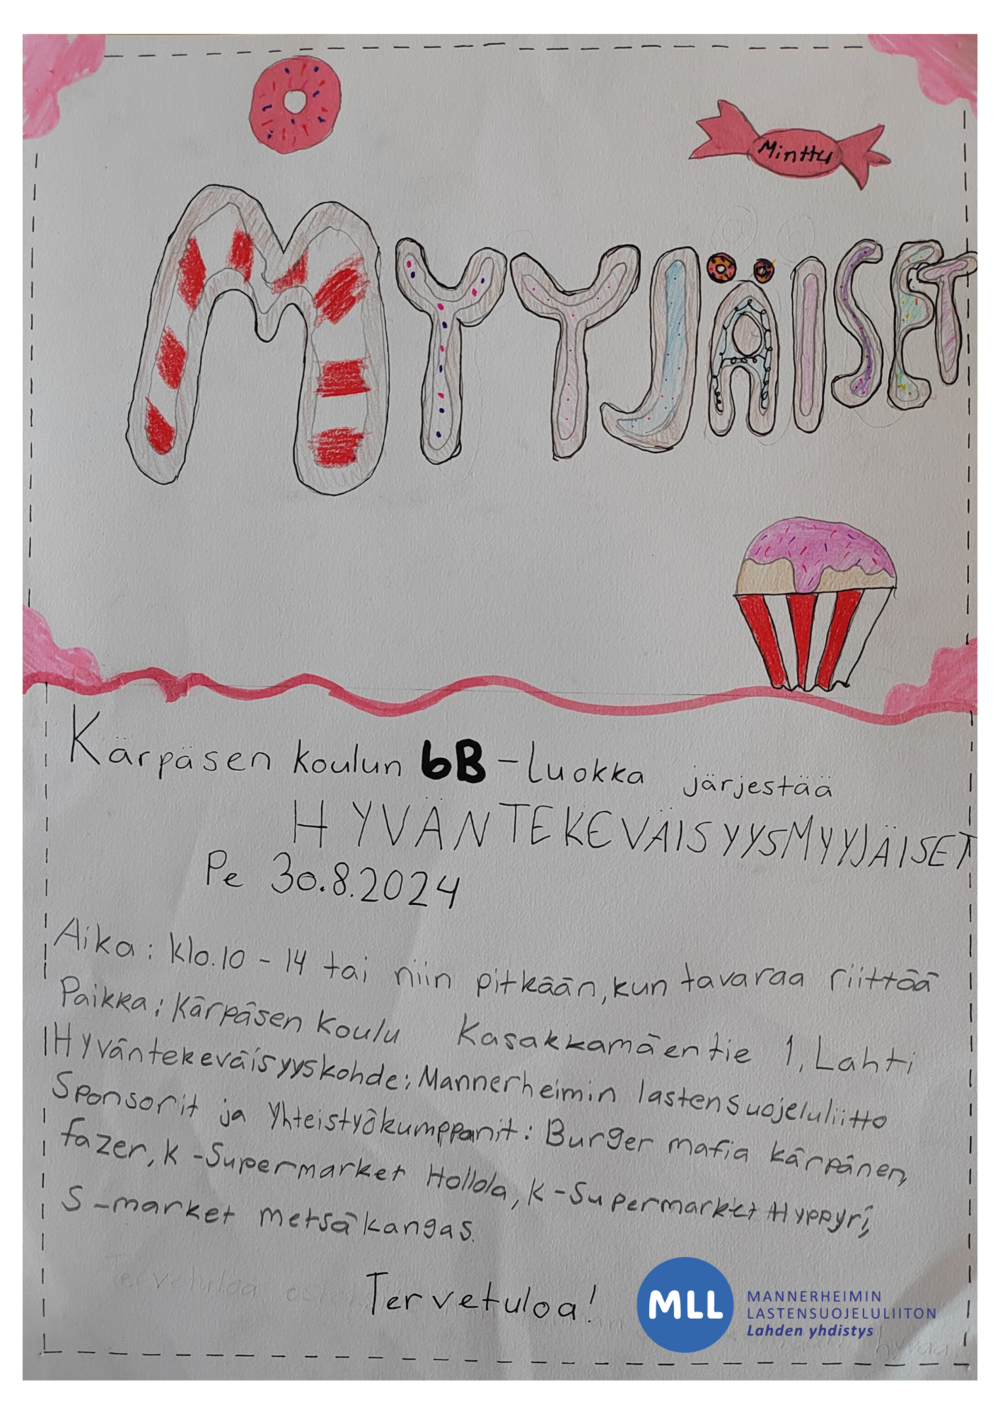 Minttu
MYYJÄISET
Kärpäsen koulun 6B-Luokka järjestää
HYVÄNTEKEVÄISYYSMYYJÄISET
Pe 30.8.2024
Aika: klo.10-14 tai niin pitkään, kun tavaraa riittää
Paikka: Kärpäsen koulu Kasakkamäentie 1, Lahti
Hyväntekeväisyyskohde: Mannerheimin lastensuojeluliitto
Sponsorit ja Yhteistyökumppanit: Burger mafia kärpänen,
fazer, K-Supermarket Hollola, K-Supermarket Hyppyri,
S-market metsäkangas.
Tervetuloa
Tervetuloa!
MLL
MANNERHEIMIN
LASTENSUOJELULIITON
Lahden yhdistys